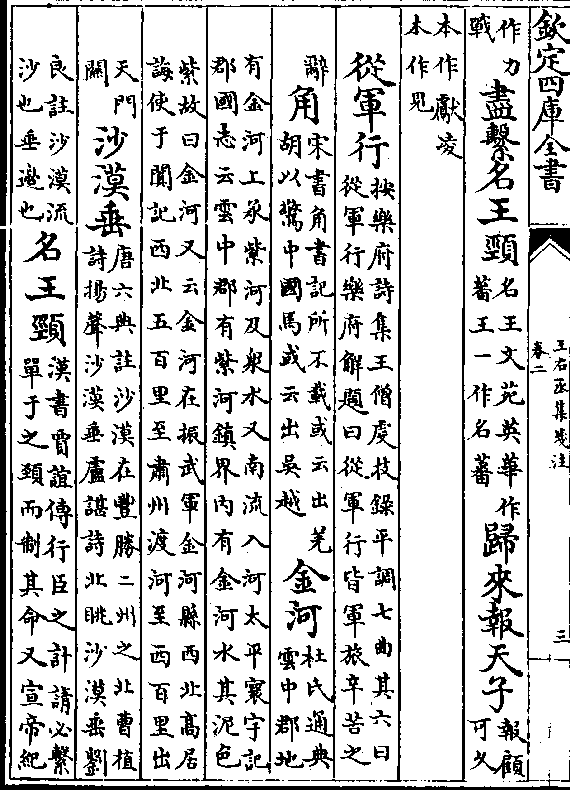 欽定四庫全書
王右丞集箋注
卷二
三
作力戰盡繫名王頸名王文苑英華作蕃王一作名蕃歸來報天子報顧可久
本作獻凌本作見
從軍行按樂府詩集王僧虔技錄平調七曲其六曰從軍行樂府解題曰從軍行皆軍旅辛苦之
辭角宋書角書記所不載或云出羌胡以驚中國馬或云出吳越金河杜氏通典雲中郡地
有金河上承紫河及象水又南流入河太平寰宇記郡國志云雲中郡有紫河鎮界内有金河水其泥色
紫故曰金河又云金河在振武軍金河縣西北高居誨使于闐記西北五百里至肅州渡河至西百里出
天門關沙漠垂唐六典註沙漠在豐勝二州之北曹植詩揚聲沙漠垂盧諶詩北眺沙漠垂劉
良註沙漠流沙也垂邊也名王頸漢書賈誼傳行臣之計請必繫單于之頸而制其命又宣帝紀